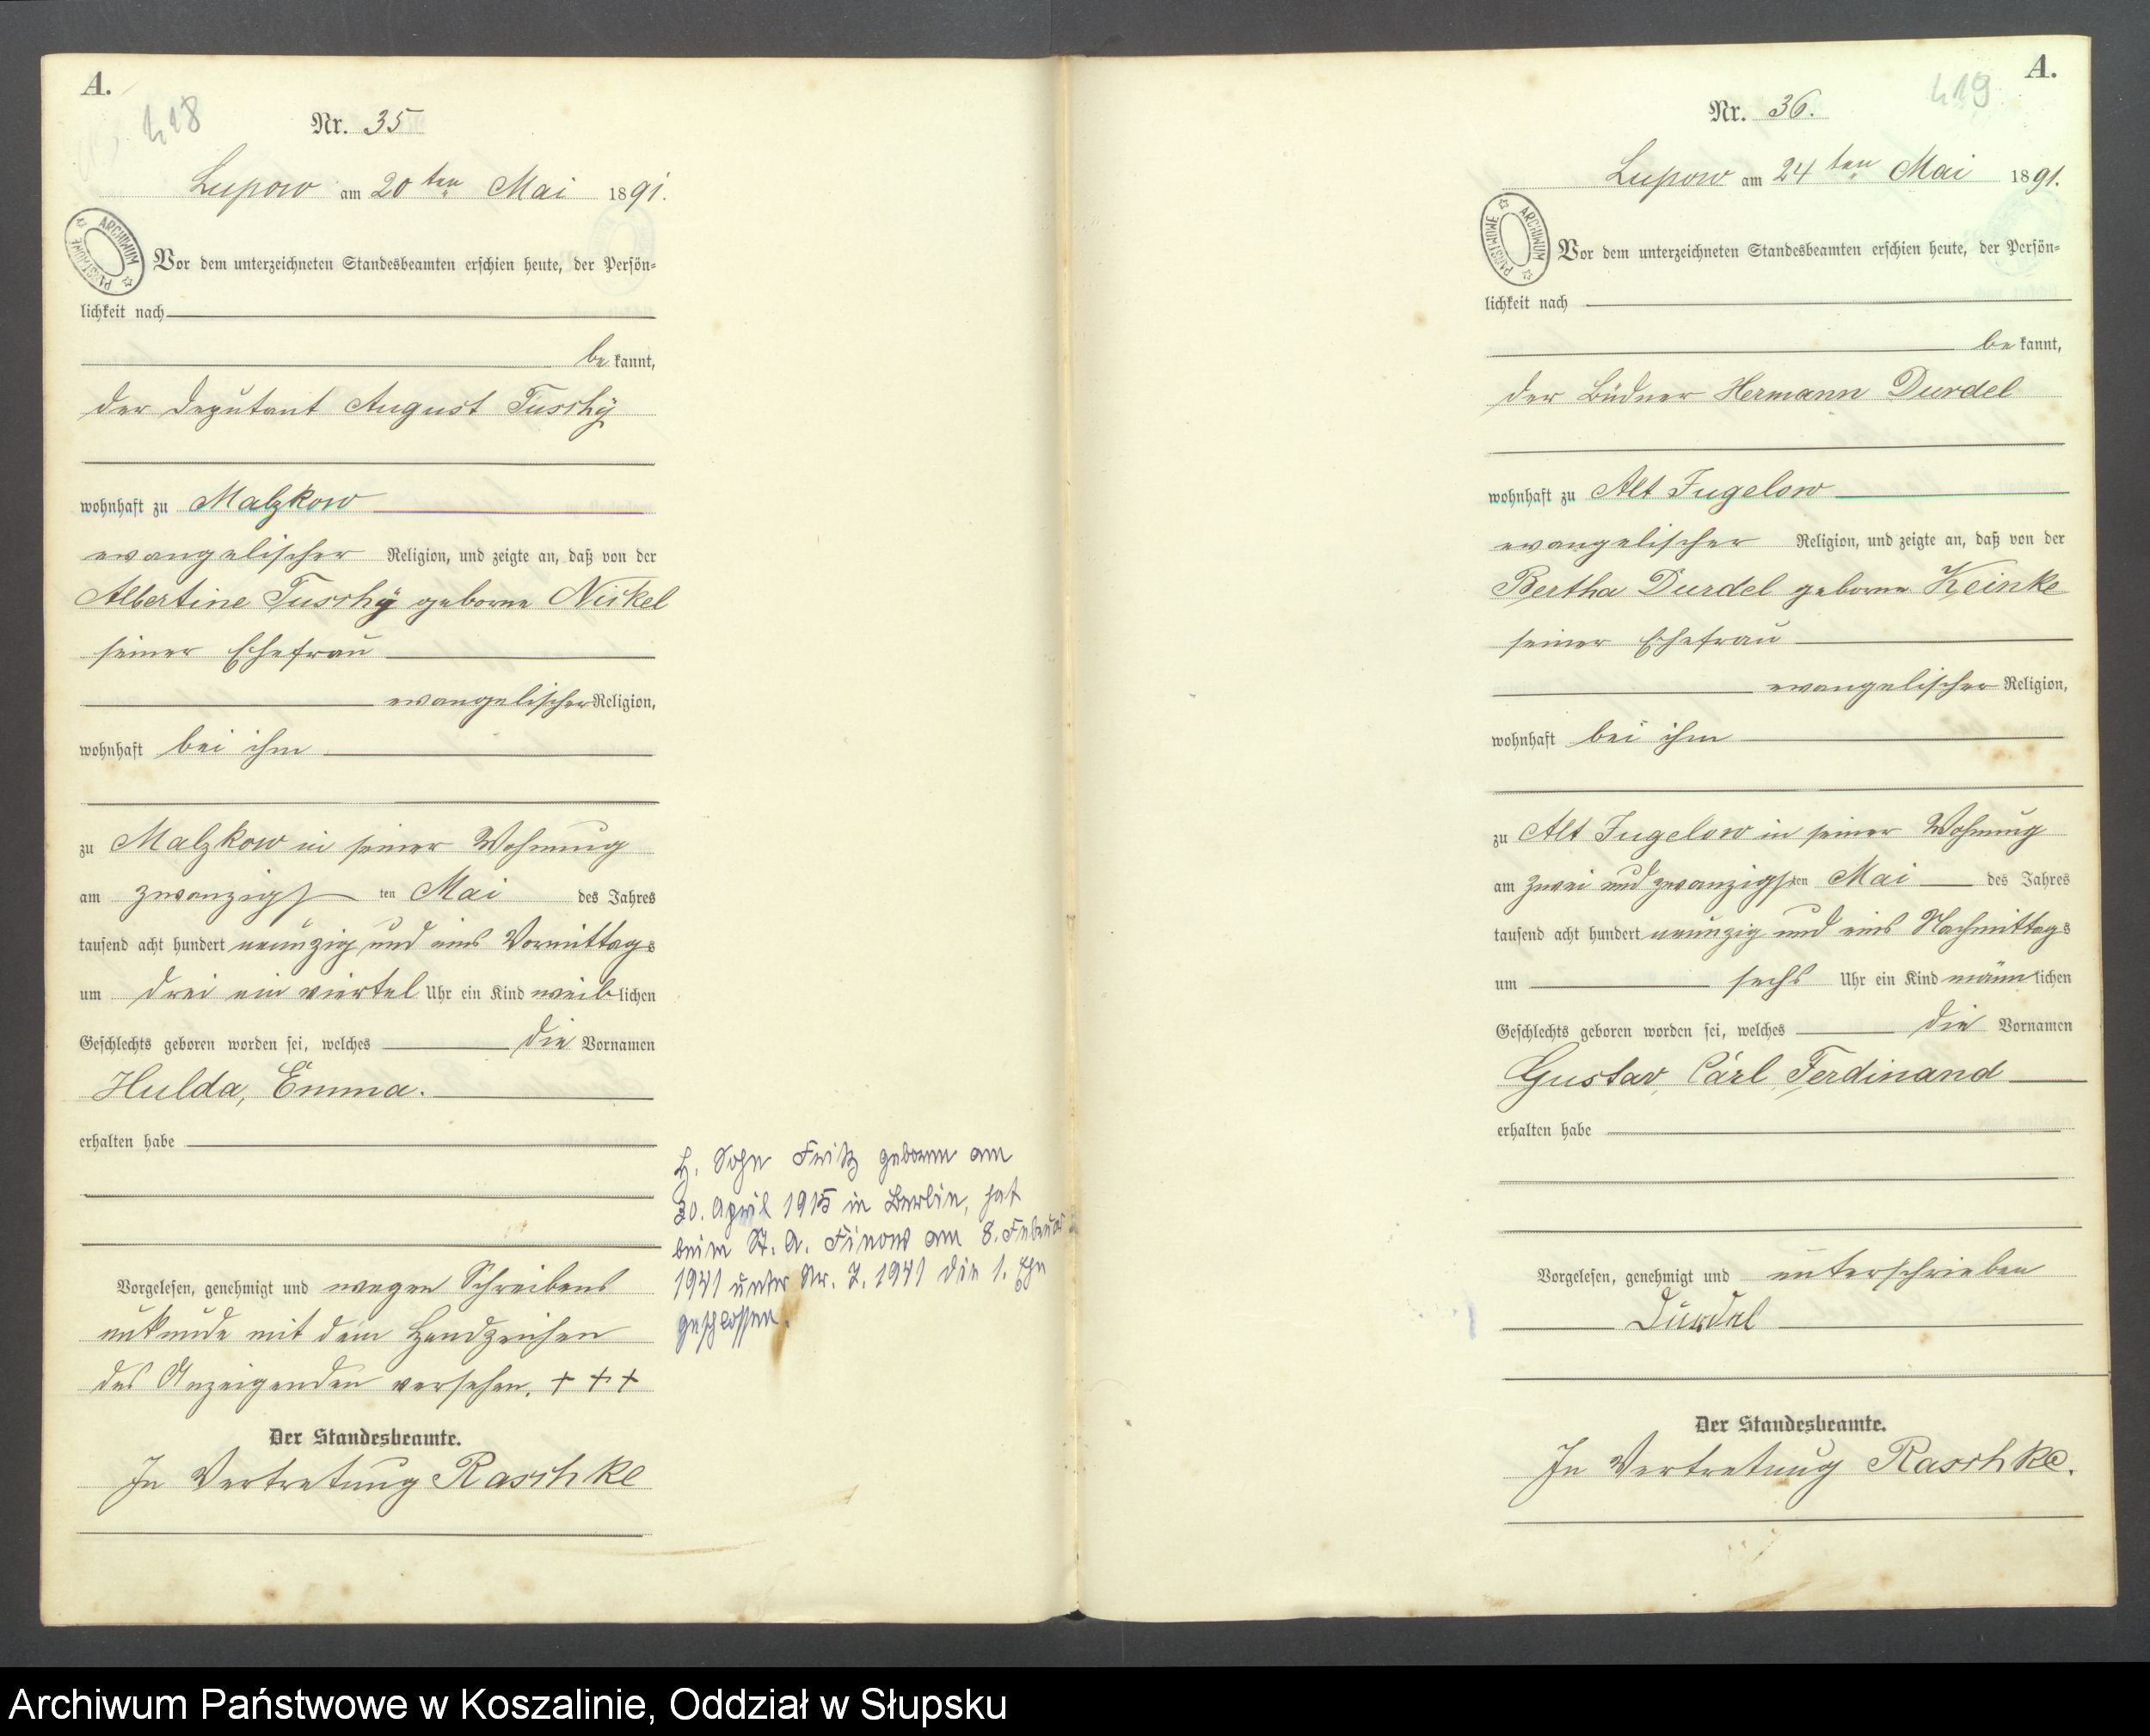 A.
418
Nr. 35
Lupow am 20ten Mai 1891.
ARCHIWUM PAŃSTWOWE
Vor dem unterzeichneten Standesbeamten erschien heute, der Persön-
lichkeit nach
be kannt,
der Deputant August Tuschÿ
wohnhaft zu Malzkow
evangelischer Religion, und zeigte an, daß von der
Albertine Tuschÿ geborne Nickel
seiner Ehefrau
evangelischer Religion,
wohnhaft bei ihm
zu Malzkow in seiner Wohnung
am zwanzigsten Mai des Jahres
tausend acht hundert neunzig und eins Vormittags
um drei ein viertel Uhr ein Kind weiblichen
Geschlechts geboren worden sei, welches die Vornamen
Hulda, Emma.
erhalten habe
Vorgelesen, genehmigt und wegen Schreibens
unkunde mit dem Handzeichen
des Anzeigenden versehen. + + +
Der Standesbeamte.
In Vertretung Raschke
H. Sohn Fritz geboren am
30. April 1915 in Berlin, hat
beim St. A. Finow am 8. Februar
1941 unter Nr. 7. 1941 die 1. Ehe
geschlossen.
A.
419
Nr. 36.
Lupow am 24ten Mai 1891.
ARCHIWUM PAŃSTWOWE
Vor dem unterzeichneten Standesbeamten erschien heute, der Persön-
lichkeit nach
be kannt,
der Büdner Hermann Durdel
wohnhaft zu Alt Jugelow
evangelischer Religion, und zeigte an, daß von der
Bertha Durdel geborne Keinke
seiner Ehefrau
evangelischer Religion,
wohnhaft bei ihm
zu Alt Jugelow in seiner Wohnung
am zwei und zwanzigsten Mai des Jahres
tausend acht hundert neunzig und eins Nachmittags
um sechs Uhr ein Kind männlichen
Geschlechts geboren worden sei, welches die Vornamen
Gustav, Carl, Ferdinand
erhalten habe
Vorgelesen, genehmigt und unterschrieben
Durdel
Der Standesbeamte.
In Vertretung Raschke.
Archiwum Państwowe w Koszalinie, Oddział w Słupsku